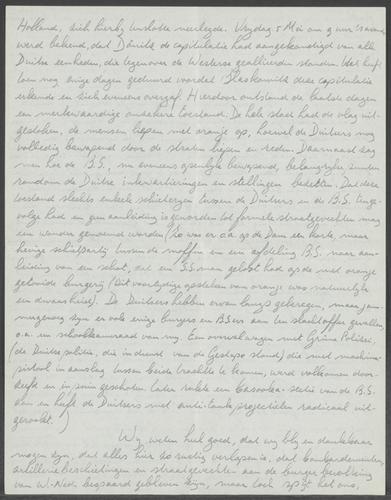 Holland, zich hierbij wenste neerlegde. Vrijdag 5 Mei om 9 uur 's avonds
werd bekend, dat Dönitz de capitulatie had aangekondigd van alle
Duitse eenheden, die tegenover de Westerse geallieerden stonden. Het heeft
toen nog enige dagen geduurd voordat Blaskowitz deze capitulatie
erkende en zich eveneens overgaf. Hierdoor ontstond de laatste dagen
een merkwaardige onzekere toestand. De hele stad had de vlag uit-
gestoken, de mensen liepen met oranje op, hoewel de Duitsers nog
volledig bewapend door de straten liepen en reden. Daarnaast zag
men hoe de B.S., nu eveneens openlijk bewapend, belangrijke punten
rondom de Duitse inkwartieringen en stellingen bezetten. Dat deze
toestand slechts enkele schietpartijen tussen de Duitsers en de B.S. tenge-
volge had en geen aanleiding is geworden tot formele straatgevechten mag
een wonder genoemd worden (zo was er o.a. op de Dam een korte, maar
hevige schietpartij tussen de moffen en een afdeling B.S. naar aan-
leiding van een schot, dat een S.S. man gelost had op de met oranje
getooide burgerij (dit voortijdige opsteken van oranje was natuurlijk
een dwaasheid). De Duitsers hebben ervan langs gekregen, maar jam-
mergenoeg zijn er ook enige burgers en BSers aan ten slachtoffer gevallen,
o.a. een schoolkameraad van mij. Een overvalwagen met Grüne Polizei,
(de Duitse politie, die in dienst van de Gestapo stond) die met machine-
pistool in aanslag tussen beide trachtte te komen, werd volkomen door-
zeefd en in puin geschoten. Later rukte een bazooka-sectie van de B.S.
aan en heeft de Duitsers met anti-tank projectielen radicaal uit-
gerookt.)
Wij weten heel goed, dat wij blij en dankbaar
mogen zijn, dat alles hier zo rustig verlopen is, dat bombardementen,
artillerie beschietingen en straatgevechten aan de burger bevolking
van W-Ned. bespaard gebleven zijn, maar toch spijt het ons,